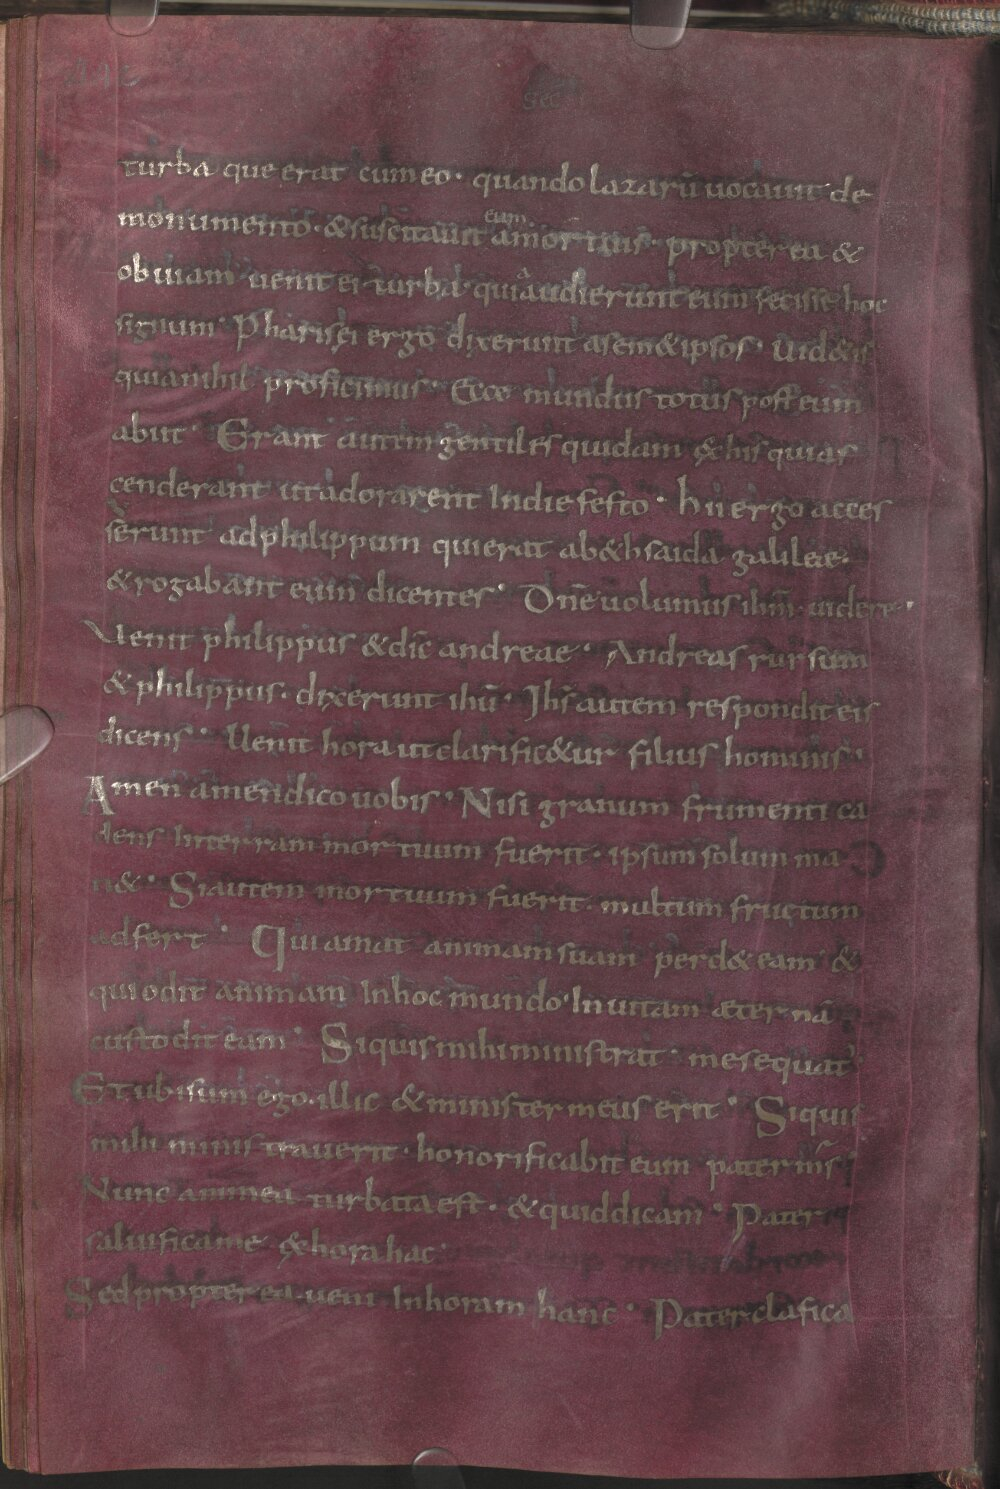 turba que erat cum eo · quando lazarū uocauit de
monumento · & suscitauit eum a mortuis · propterea &
obuiam uenit ei turba · quia audierunt eum fecisse hoc
signum · Pharisęi ergo dixerunt ad sem&ipsos · Uid&is
quia nihil proficimus · Ecce mundus totus post eum
abiit · Erant autem gentiles quidam ex his qui as
cenderant ut adorarent In die festo · hii ergo acces
serunt ad philippum qui erat a b&hsaida galileae ·
& rogabant eum dicentes · Dn̄e uolumus ihm̄ uidere ·
Uenit philippus & dic̄ andreae · Andreas rursum
& philippus · dixerunt ihū · Ihs̄ autem respondit eis
dicens · Uenit hora ut clarific&ur filius hominis ·
Amen amen dico uobis · Nisi granum frumenti ca
dens In terram mortuum fuerit · ipsum solum ma
n& · Si autem mortuum fuerit · multum fructum
adfert · Qui amat animam suam perd& eam &
qui odit animam In hoc mundo · In uitam aeternā
custodit eam · Si quis mihi ministrat · me sequat̄
Et ubi sum ego · illic & minister meus erit · Si quis
mihi ministrauerit · honorificabit eum pater m̄s ·
Nunc anima turbata est · & quid dicam · Pater
saluifica me ex hora hac ·
Sed propterea ueni In horam hanc · Pater clafica